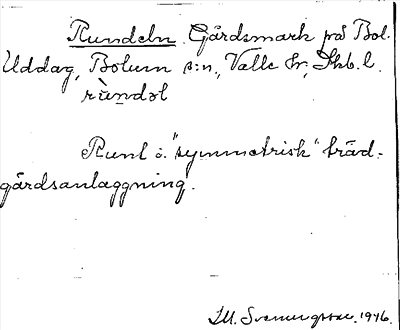 Rundeln. Gårdsmark på Bol.
Uddag, Bolum s:n, Valle hr, Skb.l.
rùndəl
Runt o. "symmetrisk" träd-
gårdsanläggning.
I.M. Svennungsson. 1946.